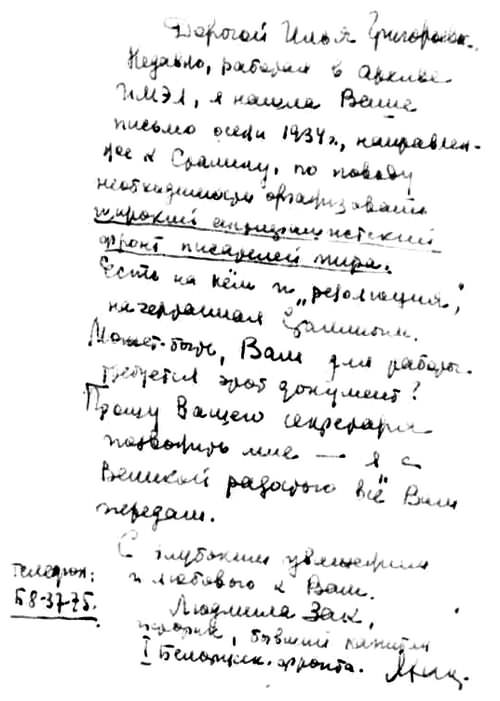 Дорогой Илья Григорьевич.
Недавно, работая в архиве
ИМЭЛ, я нашла Ваше
письмо осени 1934 г., направлен-
ное к Сталину, по поводу
необходимости организовать
широкий антифашистский
фронт писателей мира.
Есть на нём и "резолюция",
начертанная Сталиным.
Может быть, Вам для работы
требуется этот документ?
Прошу Вашего секретаря
позвонить мне — я с
великой радостью всё Вам
передам.
С глубоким уважением
и любовью к Вам.
Телефон:
Б8-37-75.
Людмила Зак,
историк, бывший капитан
I Белорусск. фронта.